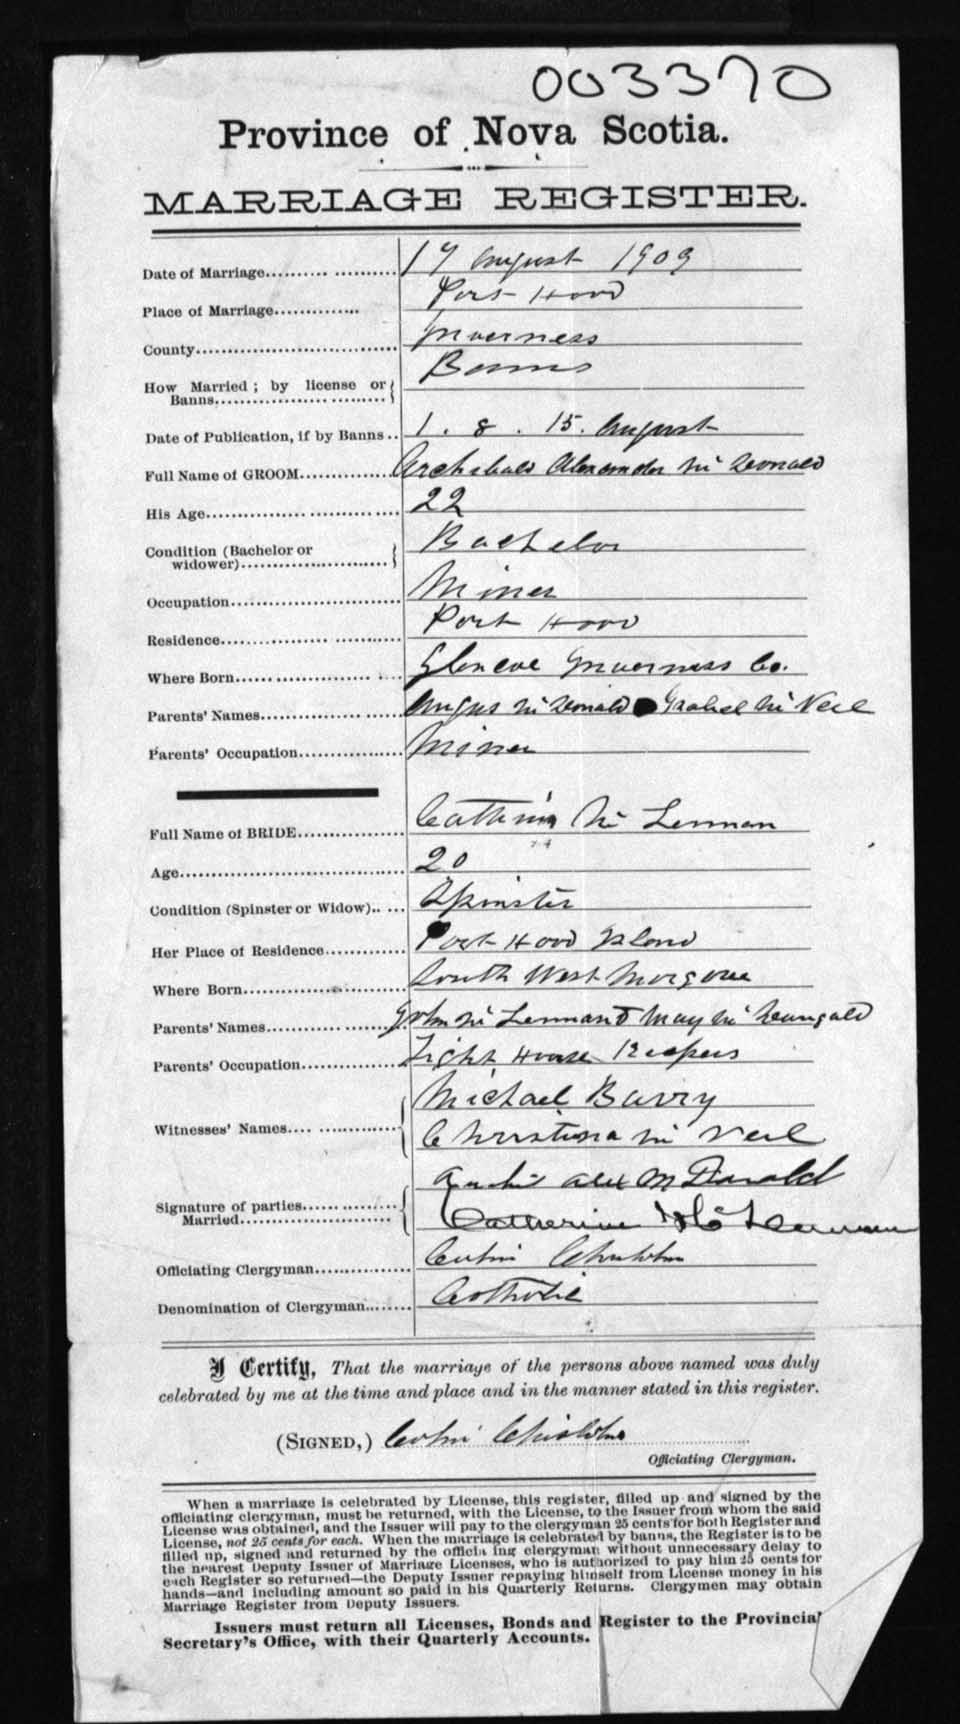 003370
Province of Nova Scotia.
MARRIAGE REGISTER.
Date of Marriage 17 August 1909
Place of Marriage Port Hood
County Inverness
How Married; by license or Banns Banns
Date of Publication, if by Banns 1. 8. 15. August
Full Name of GROOM Archibald Alexander Mc Donald
His Age 22
Condition (Bachelor or widower) Bachelor
Occupation Miner
Residence Port Hood
Where Born Glencoe Inverness Co.
Parents' Names Angus Mc Donald Isabel Mc Neil
Parents' Occupation Miner
Full Name of BRIDE Mc Lennan
Age 20
Condition (Spinster or Widow) Spinster
Her Place of Residence Port Hood Island
Where Born South West Margaree
Parents' Names John Mc Lennan & Mary Mc Dougald
Parents' Occupation Light House Keepers
Witnesses' Names Michael Barry
Christina Mc Neil
Signature of parties Married Archie Alex McDonald
Catherine Mc Lennan
Officiating Clergyman Colin Chisholm
Denomination of Clergyman Catholic
I Certify, That the marriage of the persons above named was duly
celebrated by me at the time and place and in the manner stated in this register.
(SIGNED,) Colin Chisholm
Officiating Clergyman.
When a marriage is celebrated by License, this register, filled up and signed by the
officiating clergyman, must be returned, with the License, to the Issuer from whom the said
License was obtained, and the Issuer will pay to the clergyman 25 cents for both Register and
License, not 25 cents for each. When the marriage is celebrated by banns, the Register is to be
filled up, signed and returned by the officia ing clergyman without unnecessary delay to
the nearest Deputy Issuer of Marriage Licenses, who is authorized to pay him 25 cents for
each Register so returned—the Deputy Issuer repaying himself from License money in his
hands—and including amount so paid in his Quarterly Returns. Clergymen may obtain
Marriage Register from Deputy Issuers.
Issuers must return all Licenses, Bonds and Register to the Provincial
Secretary's Office, with their Quarterly Accounts.